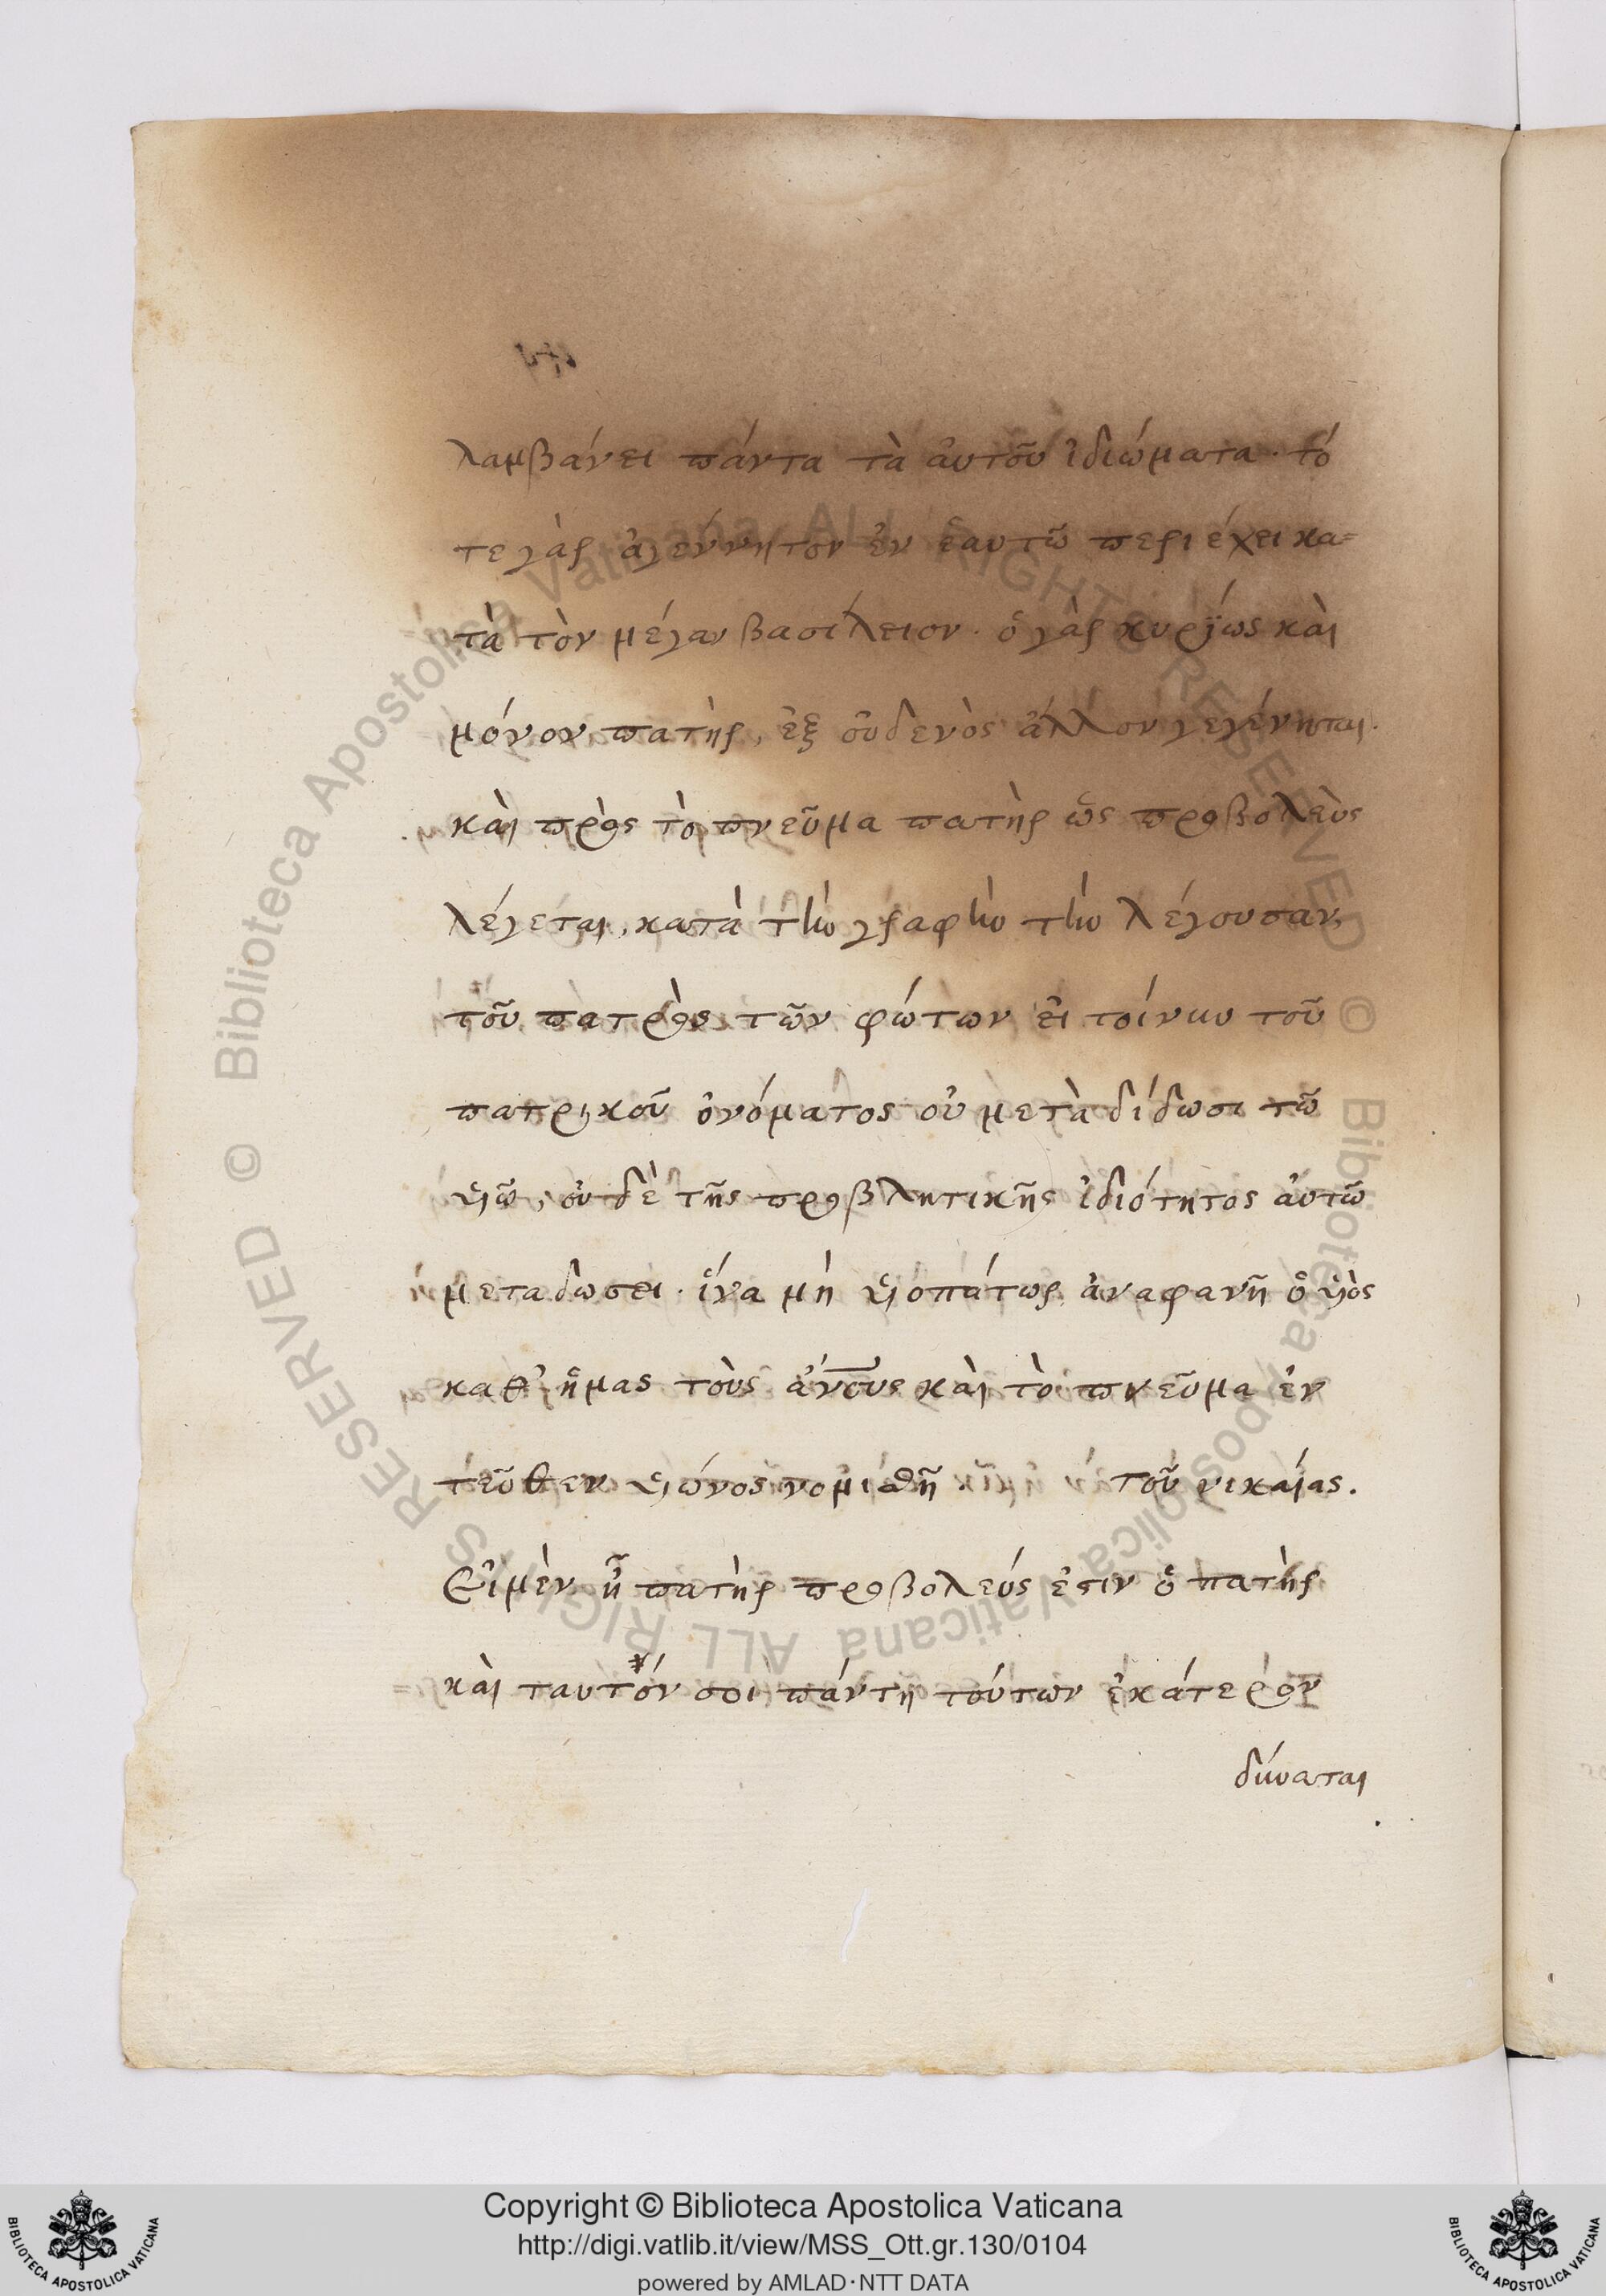 λαμβάνει πάντα τὰ ἀυτοῦ ἰδιώματα· τό
τε γὰρ ἀγέννητον ἐν ἑαυτῶ περι έχει κα=
τὰ τὸν μέγαν βασίλειον· ὁ γὰρ κυρίως κὰι
μόνον πατὴρ, ἐξ οὐδενὸς ἄλλου γεγένηται·
κὰι πρὸς τὸ πνεῦμα πατὴρ ὡς προβολεὺς
λέγεται, κατὰ τὴν γραφὴν τὴν λέγουσαν,
τοῦ πατρὸς τῶν φώτων εἰ τοίνυν τοῦ
πατρικοῦ ὀνόματος οὐ μετὰ δίδωσι τῶ
υἱῶ, οὐ δὲ τῆς προβλητικῆς ἰδιότητος ἀυτῶ
μεταδωσει· ἵνα μή υἱοπάτωρ ἀναφανῆ ὁ υἱὸς
καθ' ἡμας τοὺς ἀν́ους κὰι τὸ πνεῦμα ἐν
τεῦθεν υἱώνος νομισθῆ τοῦ νικαίας.
Εἰ μὲν ἧ πατὴρ προβολεύς ἐστιν ὁ πατὴρ
κὰι ταυτόν σοι πάντη τούτων ἑκάτερον
δύναται
Copyright © Biblioteca Apostolica Vaticana
http://digi.vatlib.it/view/MSS_Ott.gr.130/0104
powered by AMLAD·NTT DATA
BIBLIOTECA APOSTOLICA VATICANA
BIBLIOTECA APOSTOLICA VATICANA
© Biblioteca Apostolica Vaticana ALL RIGHTS RESERVED
© Biblioteca Apostolica Vaticana ALL RIGHTS RESERVED